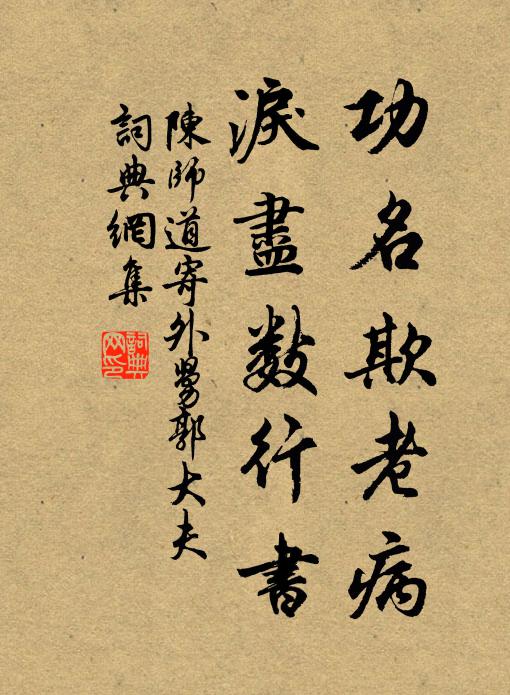 功名欺老病
淚盡數行書
陳師道寄外舅郭大夫
詞典網集
詞典
網印